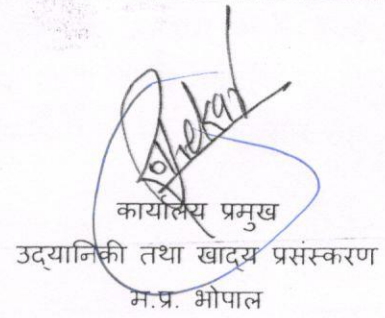 कार्यालय प्रमुख
उद्यानिकी तथा खाद्य प्रसंस्करण
म.प्र. भोपाल